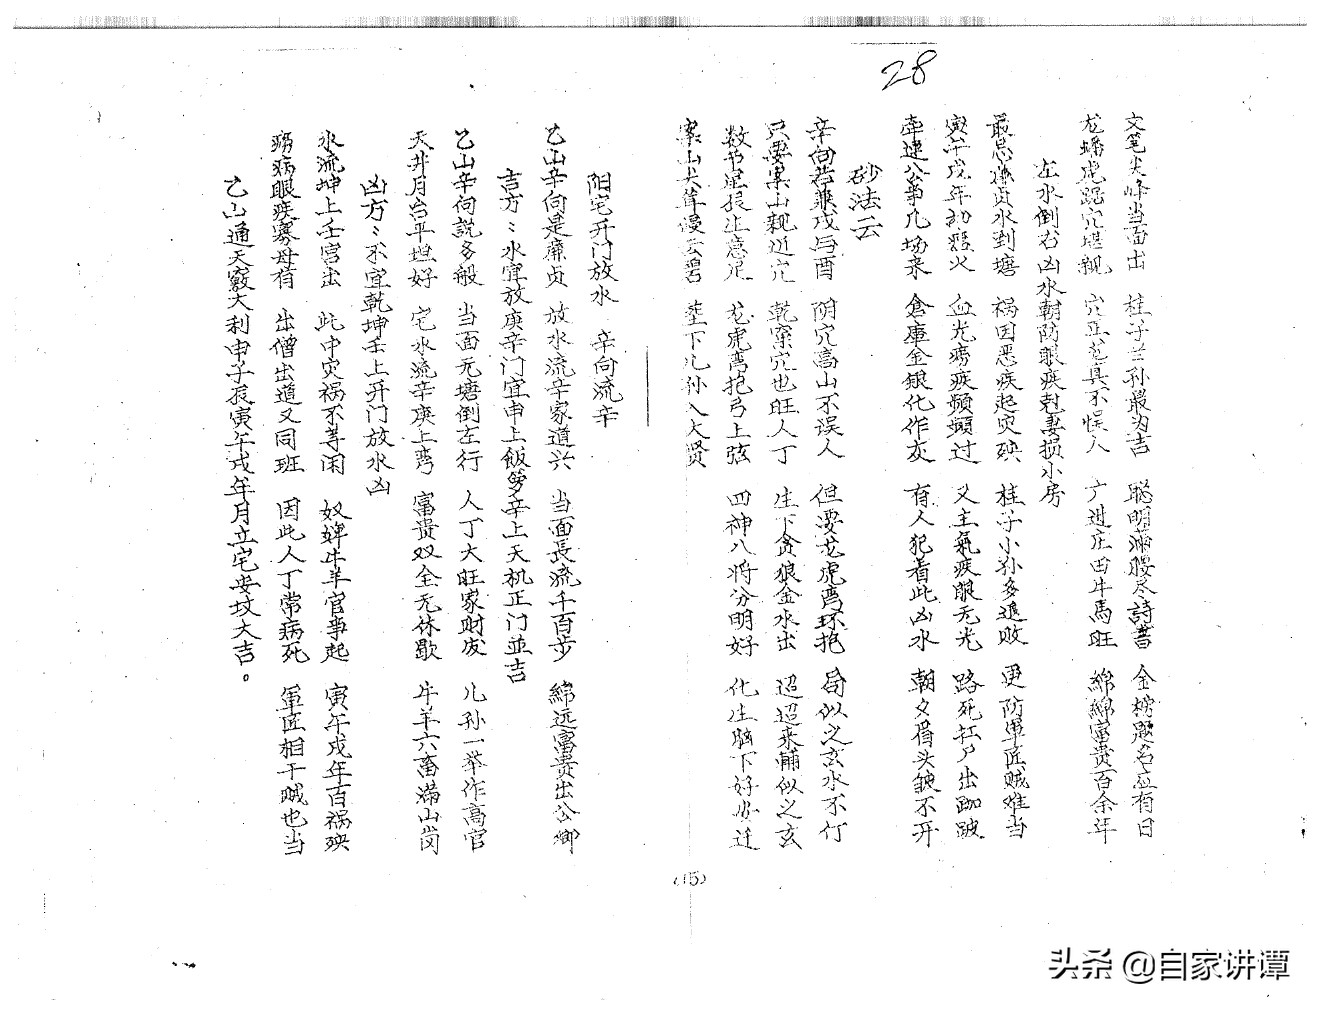 28
文笔尖峰当面出 桂子兰孙最为吉 聪明满腰尽詩書 金榜题名应有日
龙蟠虎踞穴堪親 穴正龙真不悞人 广进庄田牛馬旺 綿綿富贵百余年
左水倒右凶水朝防眼疾尅妻损小房
最忌廉贞水到塘 祸因恶疾起灾殃 桂子小孙多退败 更防軍匠贼难当
寅午戌年劫怒火 血光痨疾頻頻过 又主氣疾眼无光 路死扛尸出跏跛
牵連公事几场来 倉庫金銀化作灰 有人犯着此凶水 朝夕眉头皱不开
砂法云
辛向若兼戍与酉 阴穴高山不误人 但要龙虎弯环抱 局似之玄水不行
只要案山親近穴 乾案穴也旺人丁 生下贪狼金水出 迢迢来輔似之玄
数节星辰止意足 龙虎弯抱弓上弦 四神八将分明好 化生脑下好安迁
案山尖耸侵云碧 莹下儿孙入大贤
(15)
阳宅开门放水 辛向流辛
乙山辛向是廉贞 放水流辛家道兴 当面長流千百步 綿远富贵出公卿
吉方：水宜放庚辛门宜申上飯箩辛上天机正门並吉
乙山辛向説多般 当面无塘倒左行 人丁大旺家财发 儿孙一举作高官
天井月台平坦好 宅水流辛庚上弯 富貴双全无休歇 牛羊六畜满山岗
凶方：不宜乾坤壬上开门放水凶
水流坤上壬宫出 此中灾祸不等闲 奴婢牛羊官事起 寅午戌年百祸殃
痨病眼疾寡母有 出僧出道又同班 因此人丁常病死 軍匠相干贼也当
乙山通天竅大利申子辰寅午戌年月立宅安坟大吉。
头条 @自家讲谭